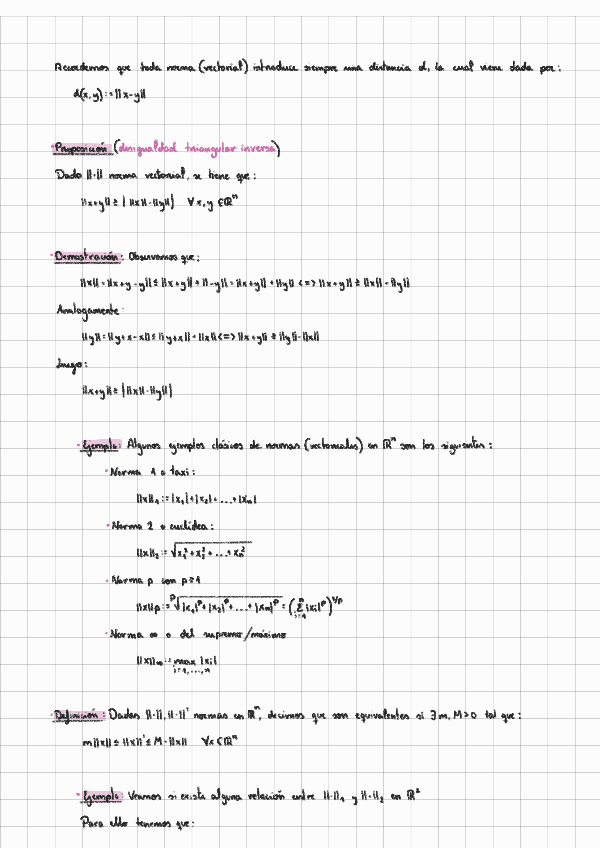 Recordemos que toda norma (vectorial) introduce siempre una distancia d, la cual viene dada por:
d(x,y) := ||x-y||
· Proposición (desigualdad triangular inversa)
Dada ||·|| norma vectorial, se tiene que:
||x+y|| ≥ | ||x|| - ||y|| | ∀x,y ∈ ℝⁿ
· Demostración: Observamos que:
||x|| = ||x+y-y|| ≤ ||x+y|| + ||-y|| = ||x+y|| + ||y|| <=> ||x+y|| ≥ ||x|| - ||y||
Analogamente:
||y|| = ||y+x-x|| ≤ ||y+x|| + ||x|| <=> ||x+y|| ≥ ||y|| - ||x||
Luego:
||x+y|| ≥ | ||x|| - ||y|| |
· Ejemplo: Algunos ejemplos clásicos de normas (vectoriales) en ℝⁿ son los siguientes:
· Norma 1 o taxi:
||x||₁ := |x₁| + |x₂| + ... + |xₙ|
· Norma 2 o euclídea:
||x||₂ := √(x₁² + x₂² + ... + xₙ²)
· Norma p con p≥1
||x||p := ᵖ√(|x₁|ᵖ + |x₂|ᵖ + ... + |xₙ|ᵖ) = (∑ᵢ₌₁ⁿ |xᵢ|ᵖ)^(1/p)
· Norma ∞ o del supremo/máximo
||x||∞ := max |xᵢ|
i=1,...,n
· Definición: Dadas ||·||, ||·||' normas en ℝⁿ, decimos que son equivalentes si ∃ m, M>0 tal que:
m||x|| ≤ ||x||' ≤ M·||x|| ∀x ∈ ℝⁿ
· Ejemplo: Veamos si existe alguna relación entre ||·||₁ y ||·||₂ en ℝ²
Para ello tenemos que: